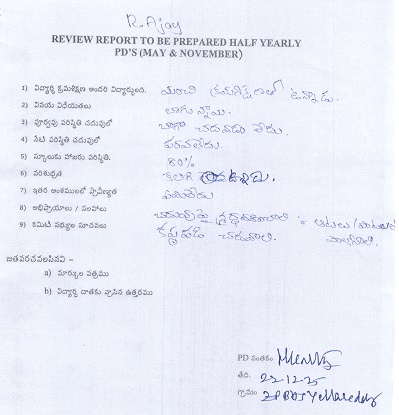 R. Ajay
REVIEW REPORT TO BE PREPARED HALF YEARLY
PD'S (MAY & NOVEMBER)
1) విద్యార్థి క్రమశిక్షణ అందరి విద్యార్థులది. మంచి క్రమశిక్షణలో ఉన్నాడు.
2) వినయ విధేయతలు బాగున్నాయి.
3) పూర్వపు పరిస్థితి చదువులో బాగా చదువడం లేదు.
4) నేటి పరిస్థితి చదువులో పరవలేదు.
5) స్కూలుకు హాజరు పరిస్థితి. 80%
6) పరిశుభ్రత కలిగి ఉన్నాడు.
7) ఇతర అంశములలో ప్రావీణ్యత ఏమిలేదు
8) అభిప్రాయాలు / సలహాలు చదువుపై శ్రద్ధ = ఆటలు
9) కమిటీ సభ్యుల సూచనలు కష్టపడి చదవాలి.
జతపరచవలసినవి –
a) మార్కుల పత్రము
b) విద్యార్థి దాతకు వ్రాసిన ఉత్తరము
PD సంతకం
తేది. 22-12-25
గ్రామం